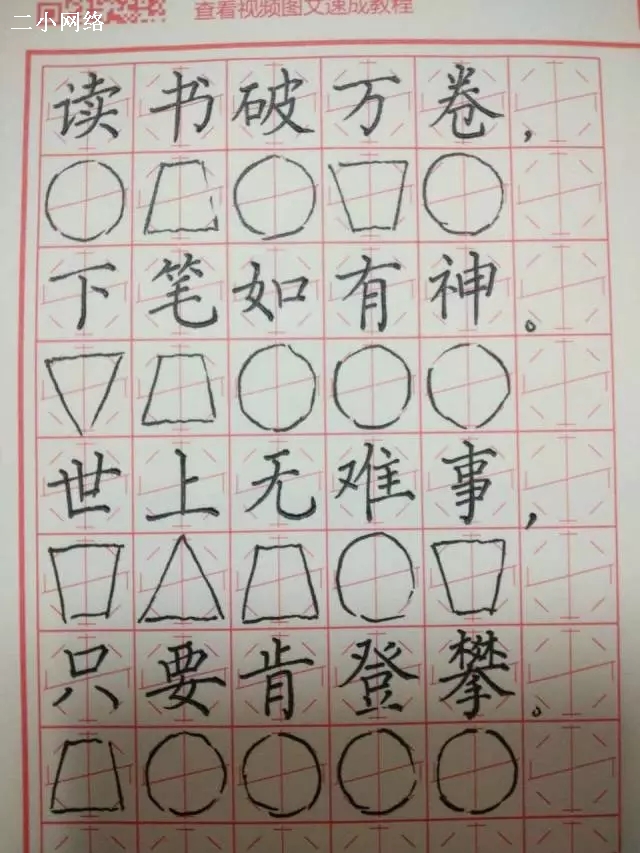 查看视频图文速成教程
二小网络
读书破万卷，
下笔如有神。
世上无难事，
只要肯登攀。